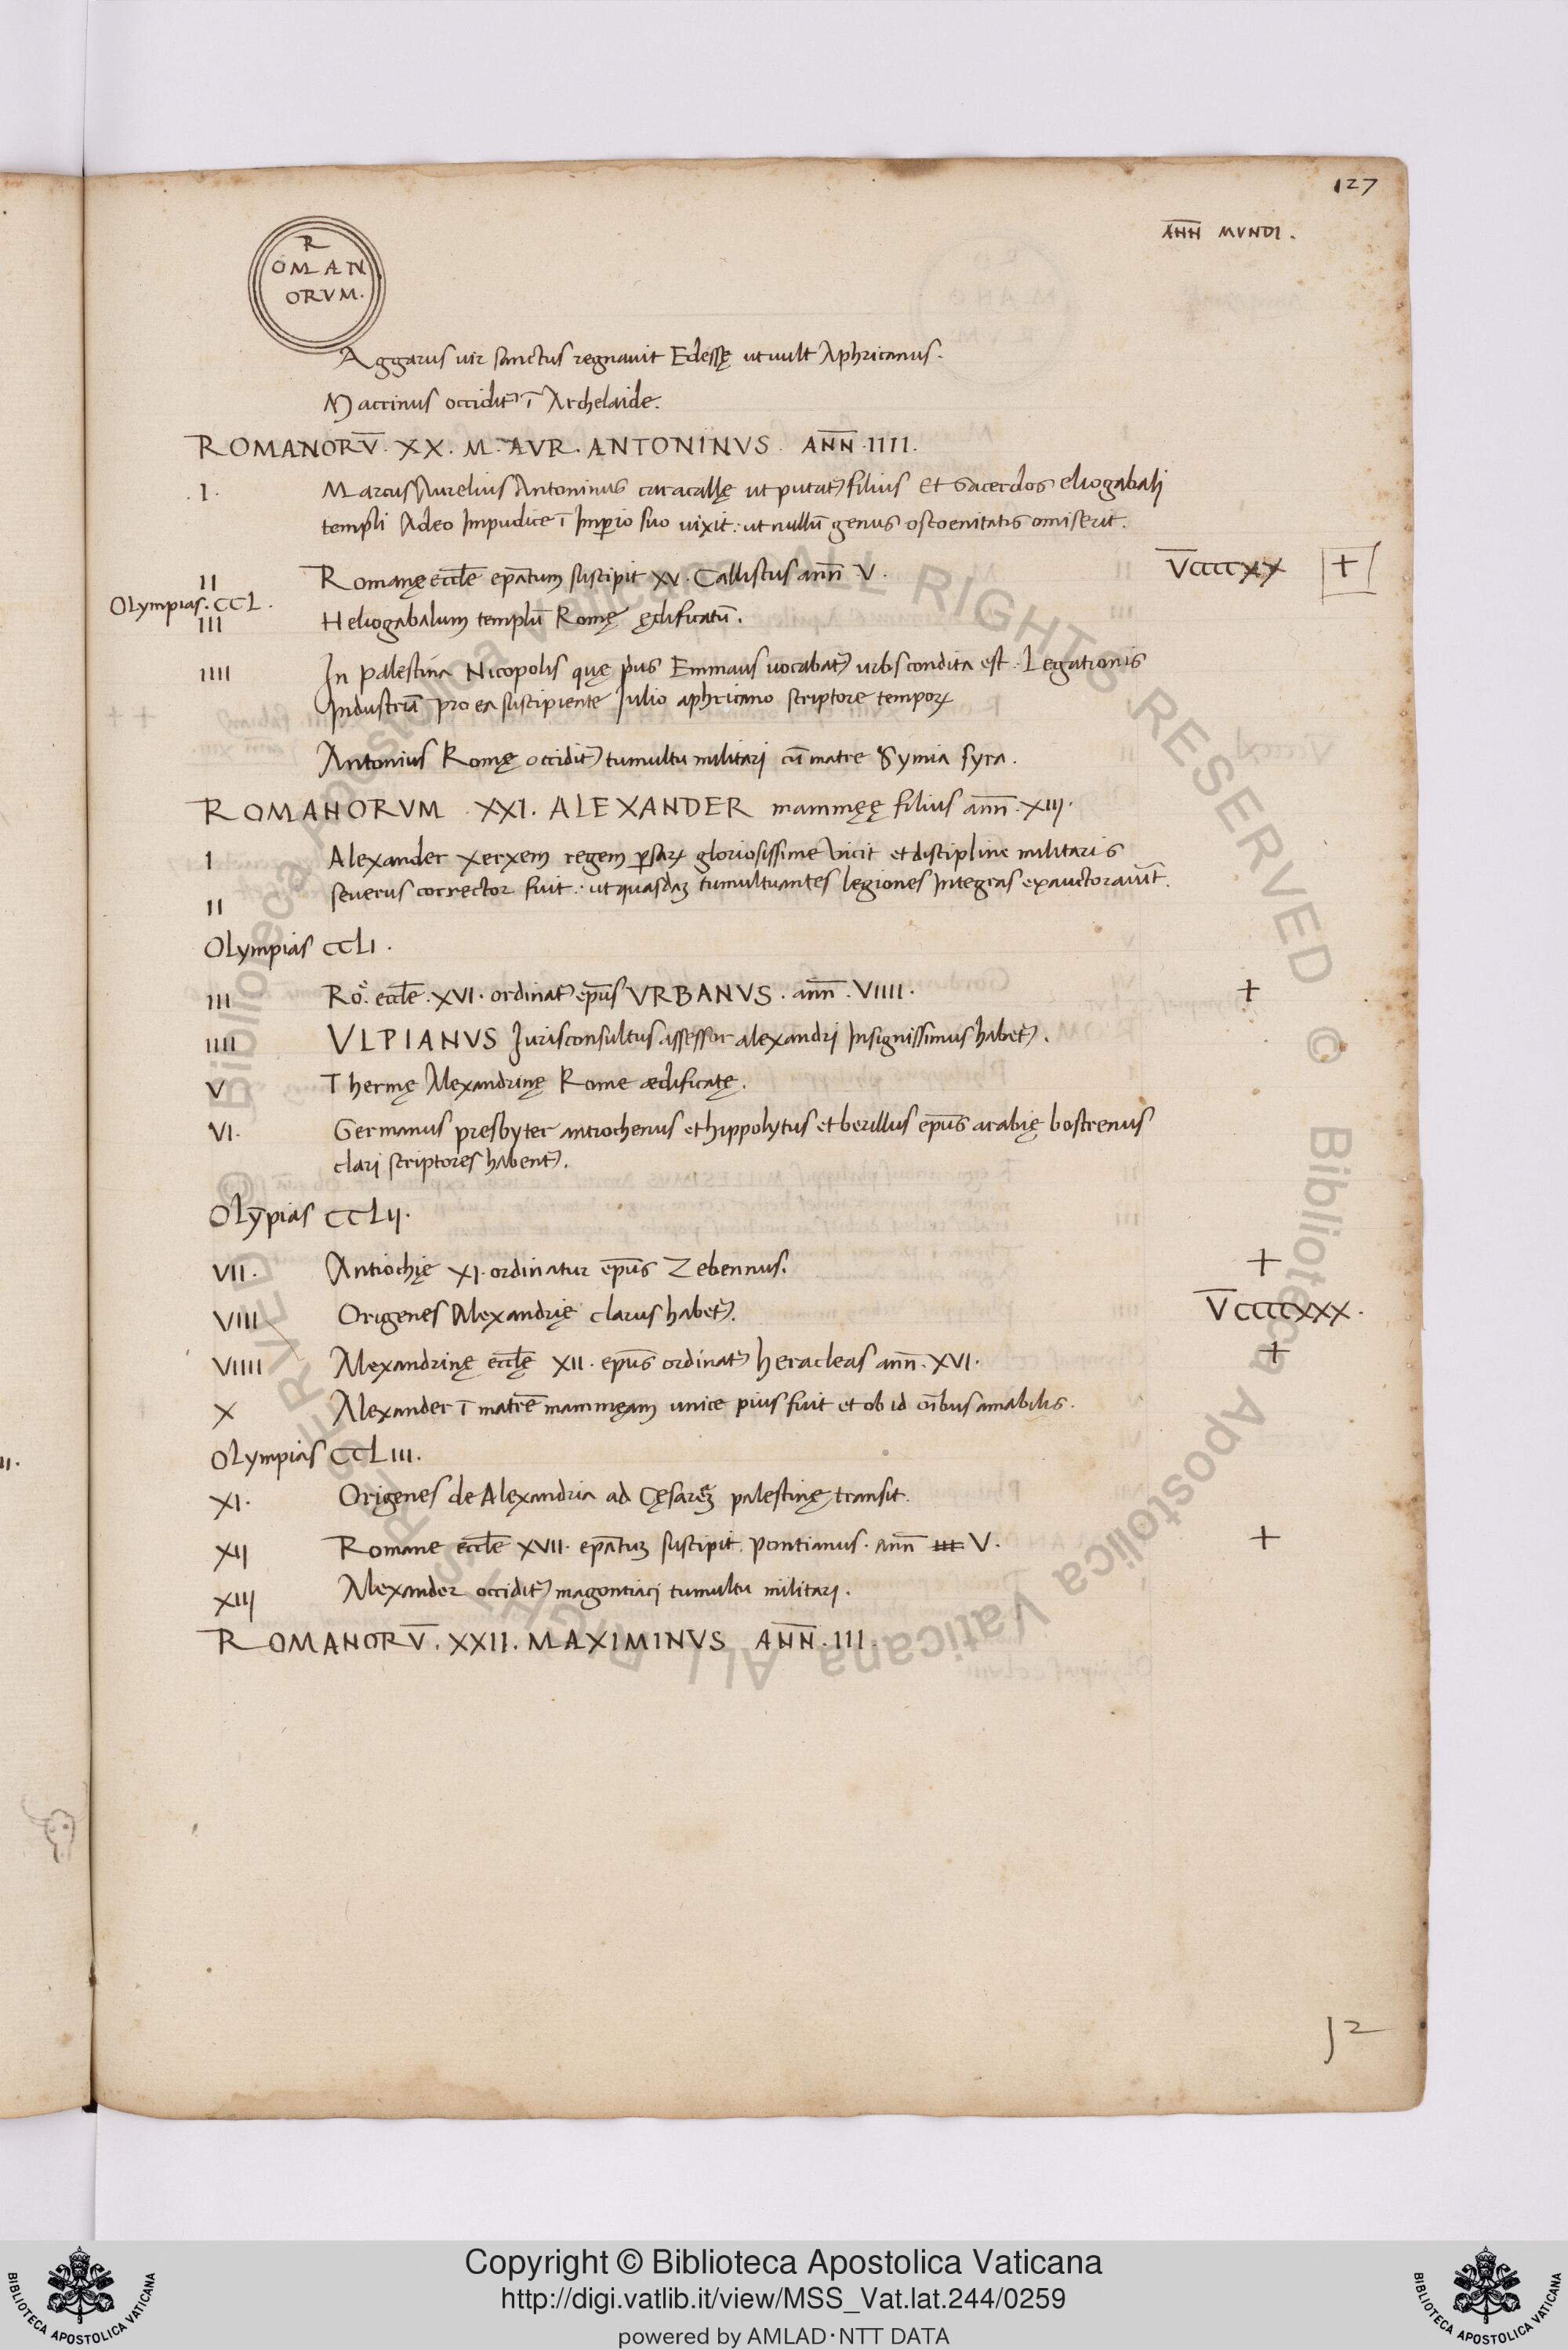 127
AN̅N̅ MVNDI.
R
OMAN
ORVM.
Aggarus uir sanctus regnauit Edessę ut uult Aphricanus.
Macrinus occidit᷑ ī Archelaide.
ROMANORV̅. XX. M. AVR. ANTONINVS. AN̅N̅. IIII.
.I. Marcus Aurelius Antoninus caracallę ut putat᷑ filius Et sacerdos eliogabalj
templi Adeo Impudice ī Imꝑio suo uixit: ut nullū genus oscoenitatis omiserit.
II Romanę eccl̅e ep̅atum suscipit XV. Callistus an̅n̅ V. V̅CCCCXX +
Olympias. CCL.
III Heliogabalum templū Romę ędificatū.
IIII In palestina Nicopolis quę p̅us Emmaus uocabat᷑ urbs condita est. Legationis
Industriā pro ea suscipiente Julio aphricano scriptore temporꝝ
Antonius Romę occidit᷑ tumultu militarj cū matre Symia syra.
ROMANORVM. XXI. ALEXANDER mammęę filius an̅n̅. XIIJ.
I Alexander xerxem regem ꝑsarꝝ gloriosissime vicit et discipline militaris
II seuerus corrector fuit: ut quasdaꝫ tumultuantes legiones Integras exauctorauit̅.
Olympias CCLI.
III Ro.̊ eccl̅e. XVI. ordinat᷑ ep̅us VRBANVS. an̅n̅. VIIII. +
IIII VLPIANVS Jurisconsultus assessor alexandrj Insignissimus habet᷑.
V Thermę Alexandrinę Rome ædificatę.
VI. Germanus presbyter antiochenus et hippolytus et berillus ep̅us arabię bostrenus
clari scriptores habent᷑.
OLȳpias CCLIJ.
VII. Antiochię XI. ordinatur ep̅us Zebennus. +
VIII Origenes Alexandrię clarus habet᷑. V̅CCCCXXX.
VIIII Alexandrinę eccl̅ę XII. ep̅us ordinat᷑ heracleas an̅n̅. XVI. +
X Alexander ī matrē mammęam unice pius fuit et ob id oı̅bus amabilis.
Olympias CCLIII.
XI. Origenes de Alexandria ad Cęsareꝫ palestinę transit.
XIJ Romane eccl̅e XVII. ep̅atuꝫ suscipit. pontianus. an̅n̅ I̶I̶I̶ V. +
XIIJ Alexander occidit᷑ magontiacj tumultu militarj.
ROMANORV̅. XXII. MAXIMINVS AN̅N̅. III.
J2
Biblioteca Apostolica Vaticana ALL RIGHTS RESERVED © Biblioteca Apostolica Vaticana ALL RIGHTS RESERVED ©
Copyright © Biblioteca Apostolica Vaticana
http://digi.vatlib.it/view/MSS_Vat.lat.244/0259
powered by AMLAD·NTT DATA
BIBLIOTECA APOSTOLICA VATICANA
BIBLIOTECA APOSTOLICA VATICANA